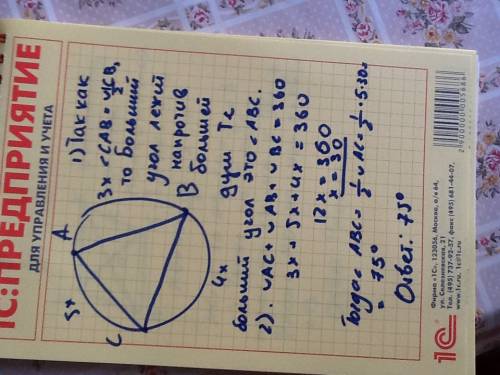 1С:ПРЕДПРИЯТИЕ
ДЛЯ УПРАВЛЕНИЯ И УЧЕТА
1) Так как
3x < CAB = ◡CB,
2
то больший
угол лежит
напротив
большей
дуги Те
A
B
C
5x
4x
3x
больший угол это < ABC.
2). ◡AC + ◡AB + ◡BC = 360
3x + 5x + 4x = 360
12x = 360
x = 30
Тогда < ABC = 1/2 ◡AC = 1/2 · 5·30=
= 75°
Ответ: 75°
1С
Фирма «1С», 123056, Москва, а/я 64,
ул. Селезневская, 21
Тел. (495) 737-92-57, факс (495) 681-44-07,
www.1c.ru, 1c@1c.ru